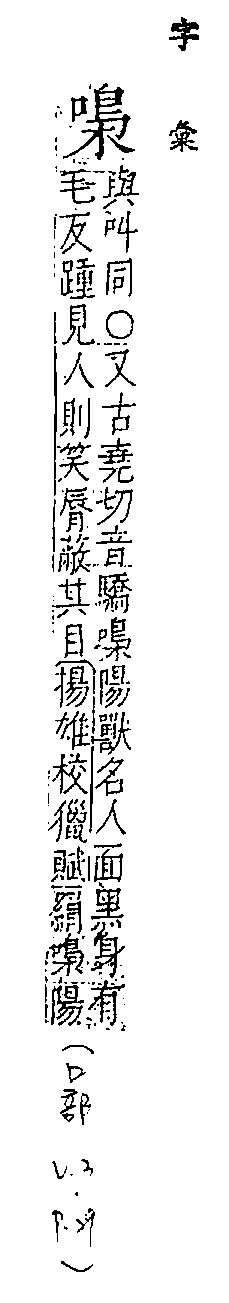 字彙
嘄
與叫同○又古堯切音驕嘄陽獸名人面黑身有
毛反踵見人則笑脣蔽其目揚雄校獵賦羂嘄陽
(口部 V.3 · P.29)